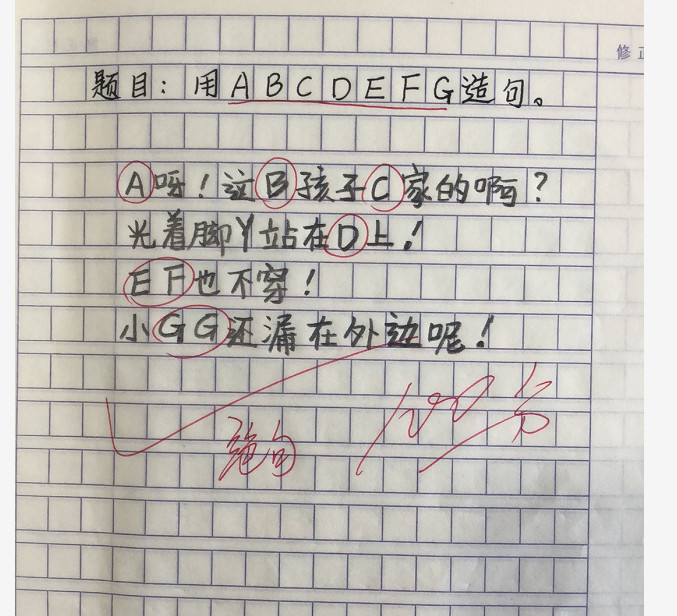 修正
题目：用ABCDEFG造句。
A呀！这B孩子C家的啊？
光着脚丫站在D上！
EF也不穿！
小GG还漏在外边呢！
绝句
100分